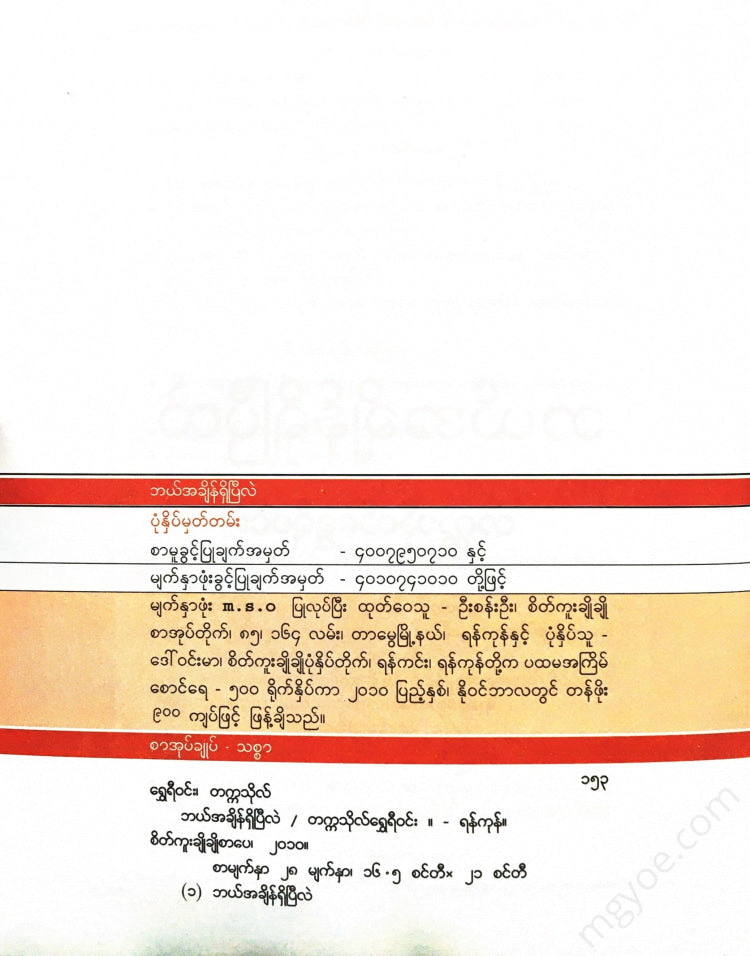 ဘယ်အချိန်ရှိပြီလဲ
ပုံနှိပ်မှတ်တမ်း
စာမူခွင့်ပြုချက်အမှတ် - ၄၀၀၇၉၅၀၇၁၀ နှင့်
မျက်နှာဖုံးခွင့်ပြုချက်အမှတ် - ၄၀၁၀၇၄၁၀၁၀ တို့ဖြင့်
မျက်နှာဖုံး m.s.o ပြုလုပ်ပြီး ထုတ်ဝေသူ - ဦးစန်းဦး၊ စိတ်ကူးချိုချို
စာအုပ်တိုက်၊ ၈၅၊ ၁၆၄ လမ်း၊ တာမွေမြို့နယ်၊ ရန်ကုန်နှင့် ပုံနှိပ်သူ -
ဒေါ်ဝင်းမာ၊ စိတ်ကူးချိုချိုပုံနှိပ်တိုက်၊ ရန်ကင်း၊ ရန်ကုန်တို့က ပထမအကြိမ်
စောင်ရေ - ၅၀၀ ရိုက်နှိပ်ကာ ၂၀၁၀ ပြည့်နှစ်၊ နိုဝင်ဘာလတွင် တန်ဖိုး
၉၀၀ ကျပ်ဖြင့် ဖြန့်ချိသည်။
စာအုပ်ချုပ် - သစ္စာ
၁၅၃
ရွှေရီဝင်း၊ တက္ကသိုလ်
ဘယ်အချိန်ရှိပြီလဲ / တက္ကသိုလ်ရွှေရီဝင်း ။ - ရန်ကုန်။
စိတ်ကူးချိုချိုစာပေ၊ ၂၀၁၀။
စာမျက်နှာ ၂၈ မျက်နှာ၊ ၁၆.၅ စင်တီ× ၂၁ စင်တီ
(၁) ဘယ်အချိန်ရှိပြီလဲ
mgyoe.com